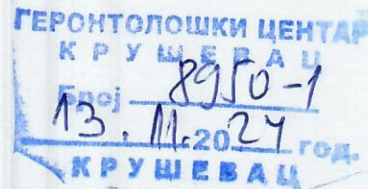 ГЕРОНТОЛОШКИ ЦЕНТАР
КРУШЕВАЦ
Број 8950-1
13. 11. 2024 год.
КРУШЕВАЦ